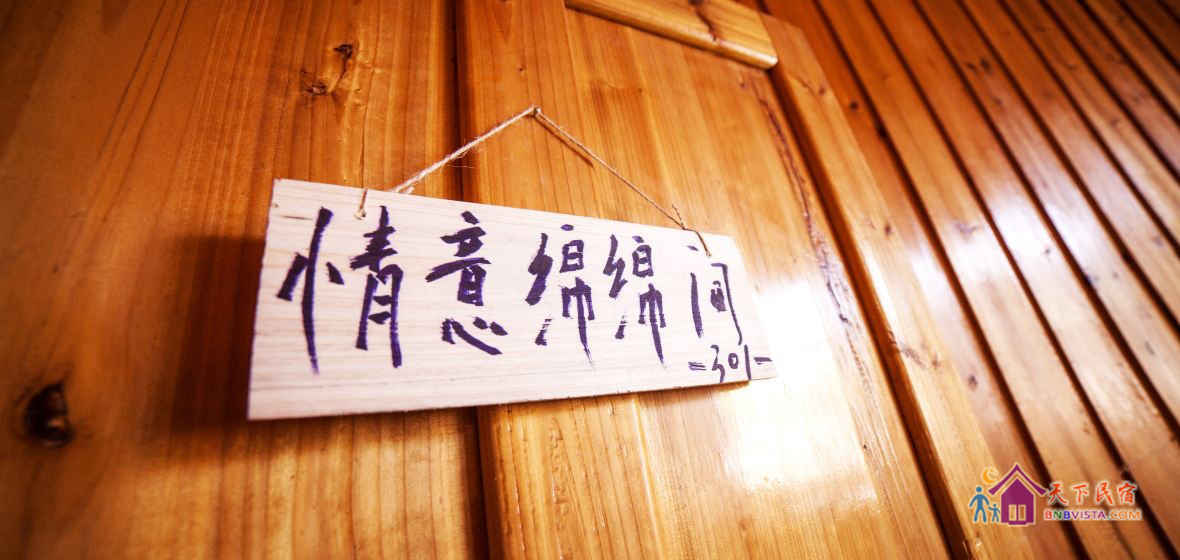 情意绵绵间
-301-
天下民宿
BNBVISTA.COM